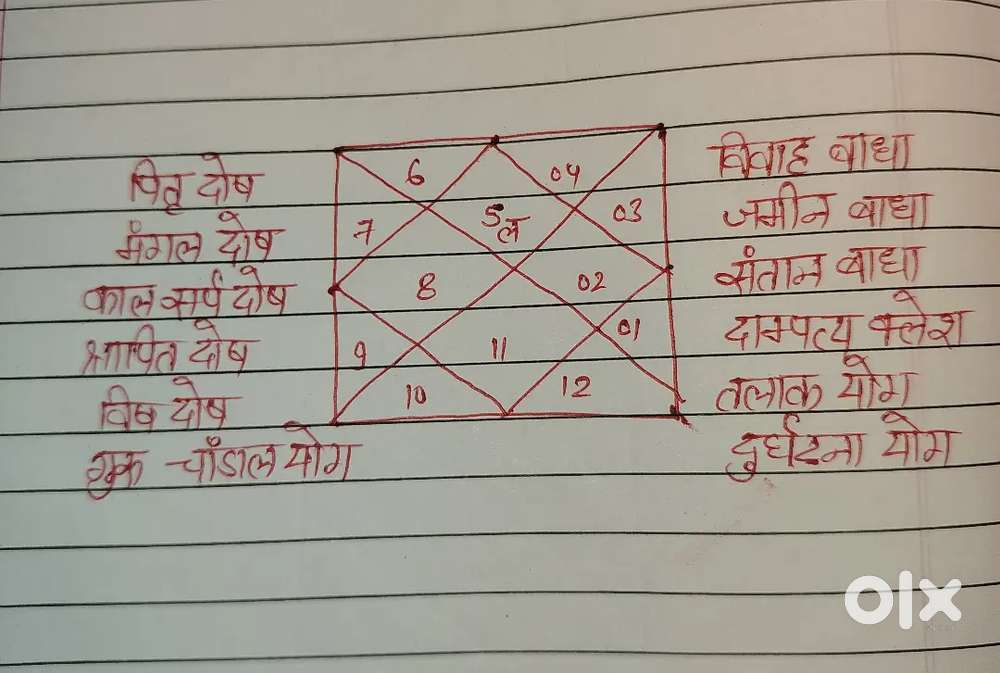 पितृ दोष
मंगल दोष
काल सर्प दोष
श्रापित दोष
विष दोष
गुरु चाँडाल योग
6 04
7 5 ल 03
8 02
9 11 01
10 12
विवाह बाधा
जमीन बाधा
संतान बाधा
दाम्पत्य क्लेश
तलाक योग
दुर्घटना योग
olx